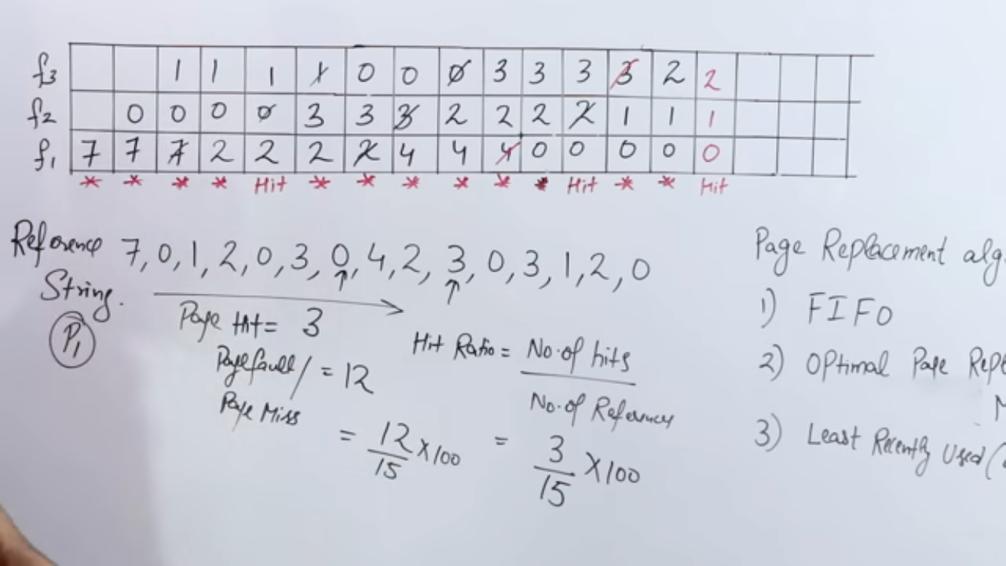 f3 1 1 1 1 0 0 0 3 3 3 3 2 2
f2 0 0 0 0 3 3 3 2 2 2 2 1 1 1
f1 7 7 7 2 2 2 2 4 4 4 0 0 0 0 0
* * * * Hit * * * * * * Hit * * Hit
Reference 7, 0, 1, 2, 0, 3, 0, 4, 2, 3, 0, 3, 1, 2, 0
String.
P1
Page Hit = 3
Page fault / = 12
Page Miss
= 12/15 X100
Hit Ratio = No. of hits
No. of References
= 3/15 X100
Page Replacement alg
1) FIFO
2) Optimal Page Repl
3) Least Recently Used (